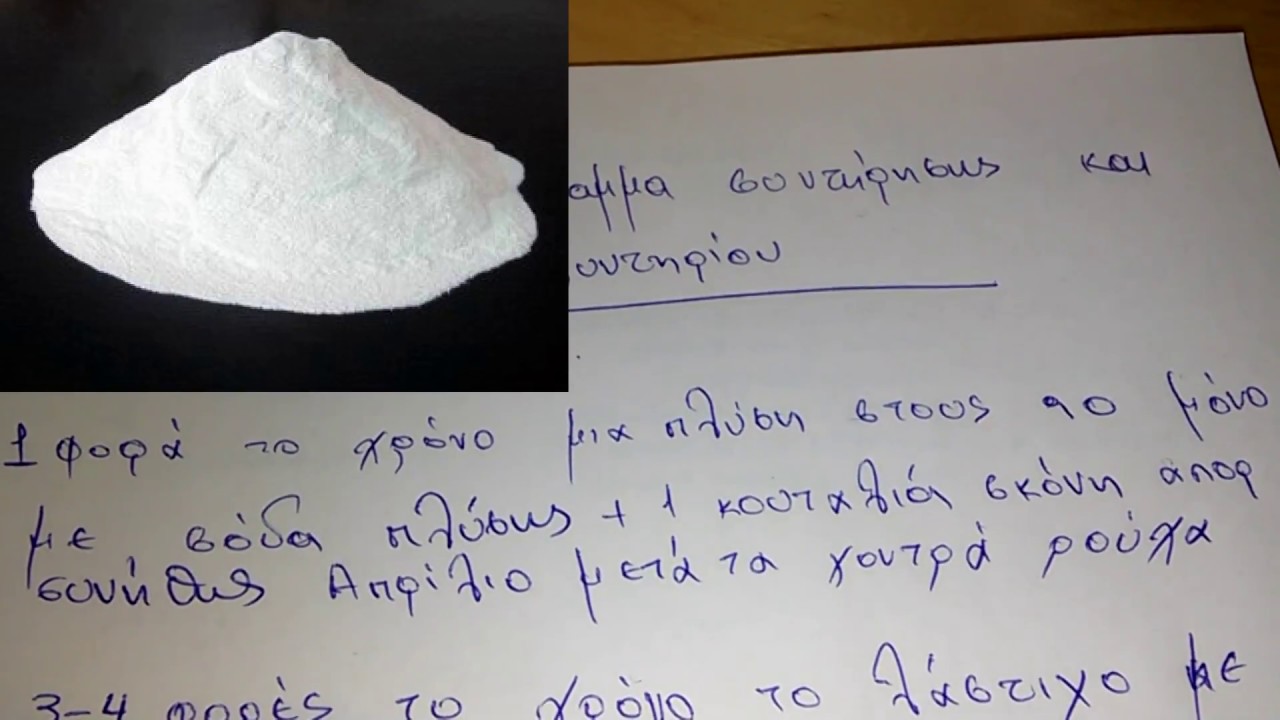 αμμα συντήρησης και
ουντηρίου
1 φορά το χρόνο μια πλύση στους 90 μόνο
με σόδα πλύσης + 1 κουταλιά σκόνη απορ
συνήθως Απρίλιο μετά τα χοντρά ρούχα
3-4 φορές το χρόνο το λάστιχο με